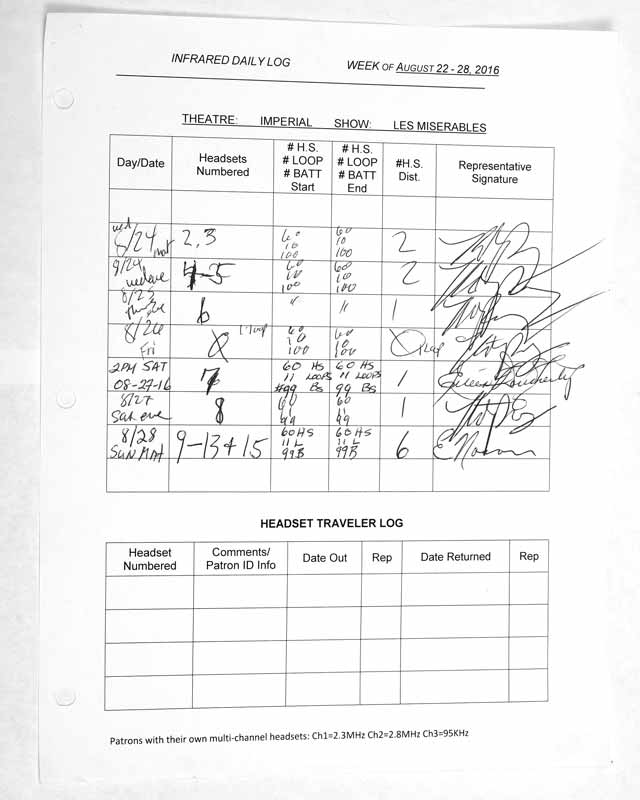 INFRARED DAILY LOG WEEK OF AUGUST 22 - 28, 2016
THEATRE: IMPERIAL SHOW: LES MISERABLES
Day/Date
Headsets
Numbered
# H.S.
# LOOP
# BATT
Start
# H.S.
# LOOP
# BATT
End
#H.S.
Dist.
Representative
Signature
wed
8/24 mat
2, 3
60
10
100
60
10
100
2
9/24
4-5
60
10
100
60
10
100
2
8/25
6
"
"
1
8/26
Fri
1 loop
60
10
100
60
10
100
1 loop
2PM SAT
08-27-16
7
60 HS
11 LOOPS
#99 BS
60 HS
11 LOOPS
99 BS
1
8/27
Sat eve
8
60
11
99
60
11
99
1
8/28
SUN MAT
9-13 + 15
60 HS
11 L
99 B
60 HS
11 L
99 B
6
HEADSET TRAVELER LOG
Headset
Numbered
Comments/
Patron ID Info
Date Out
Rep
Date Returned
Rep
Patrons with their own multi-channel headsets: Ch1=2.3MHz Ch2=2.8MHz Ch3=95KHz